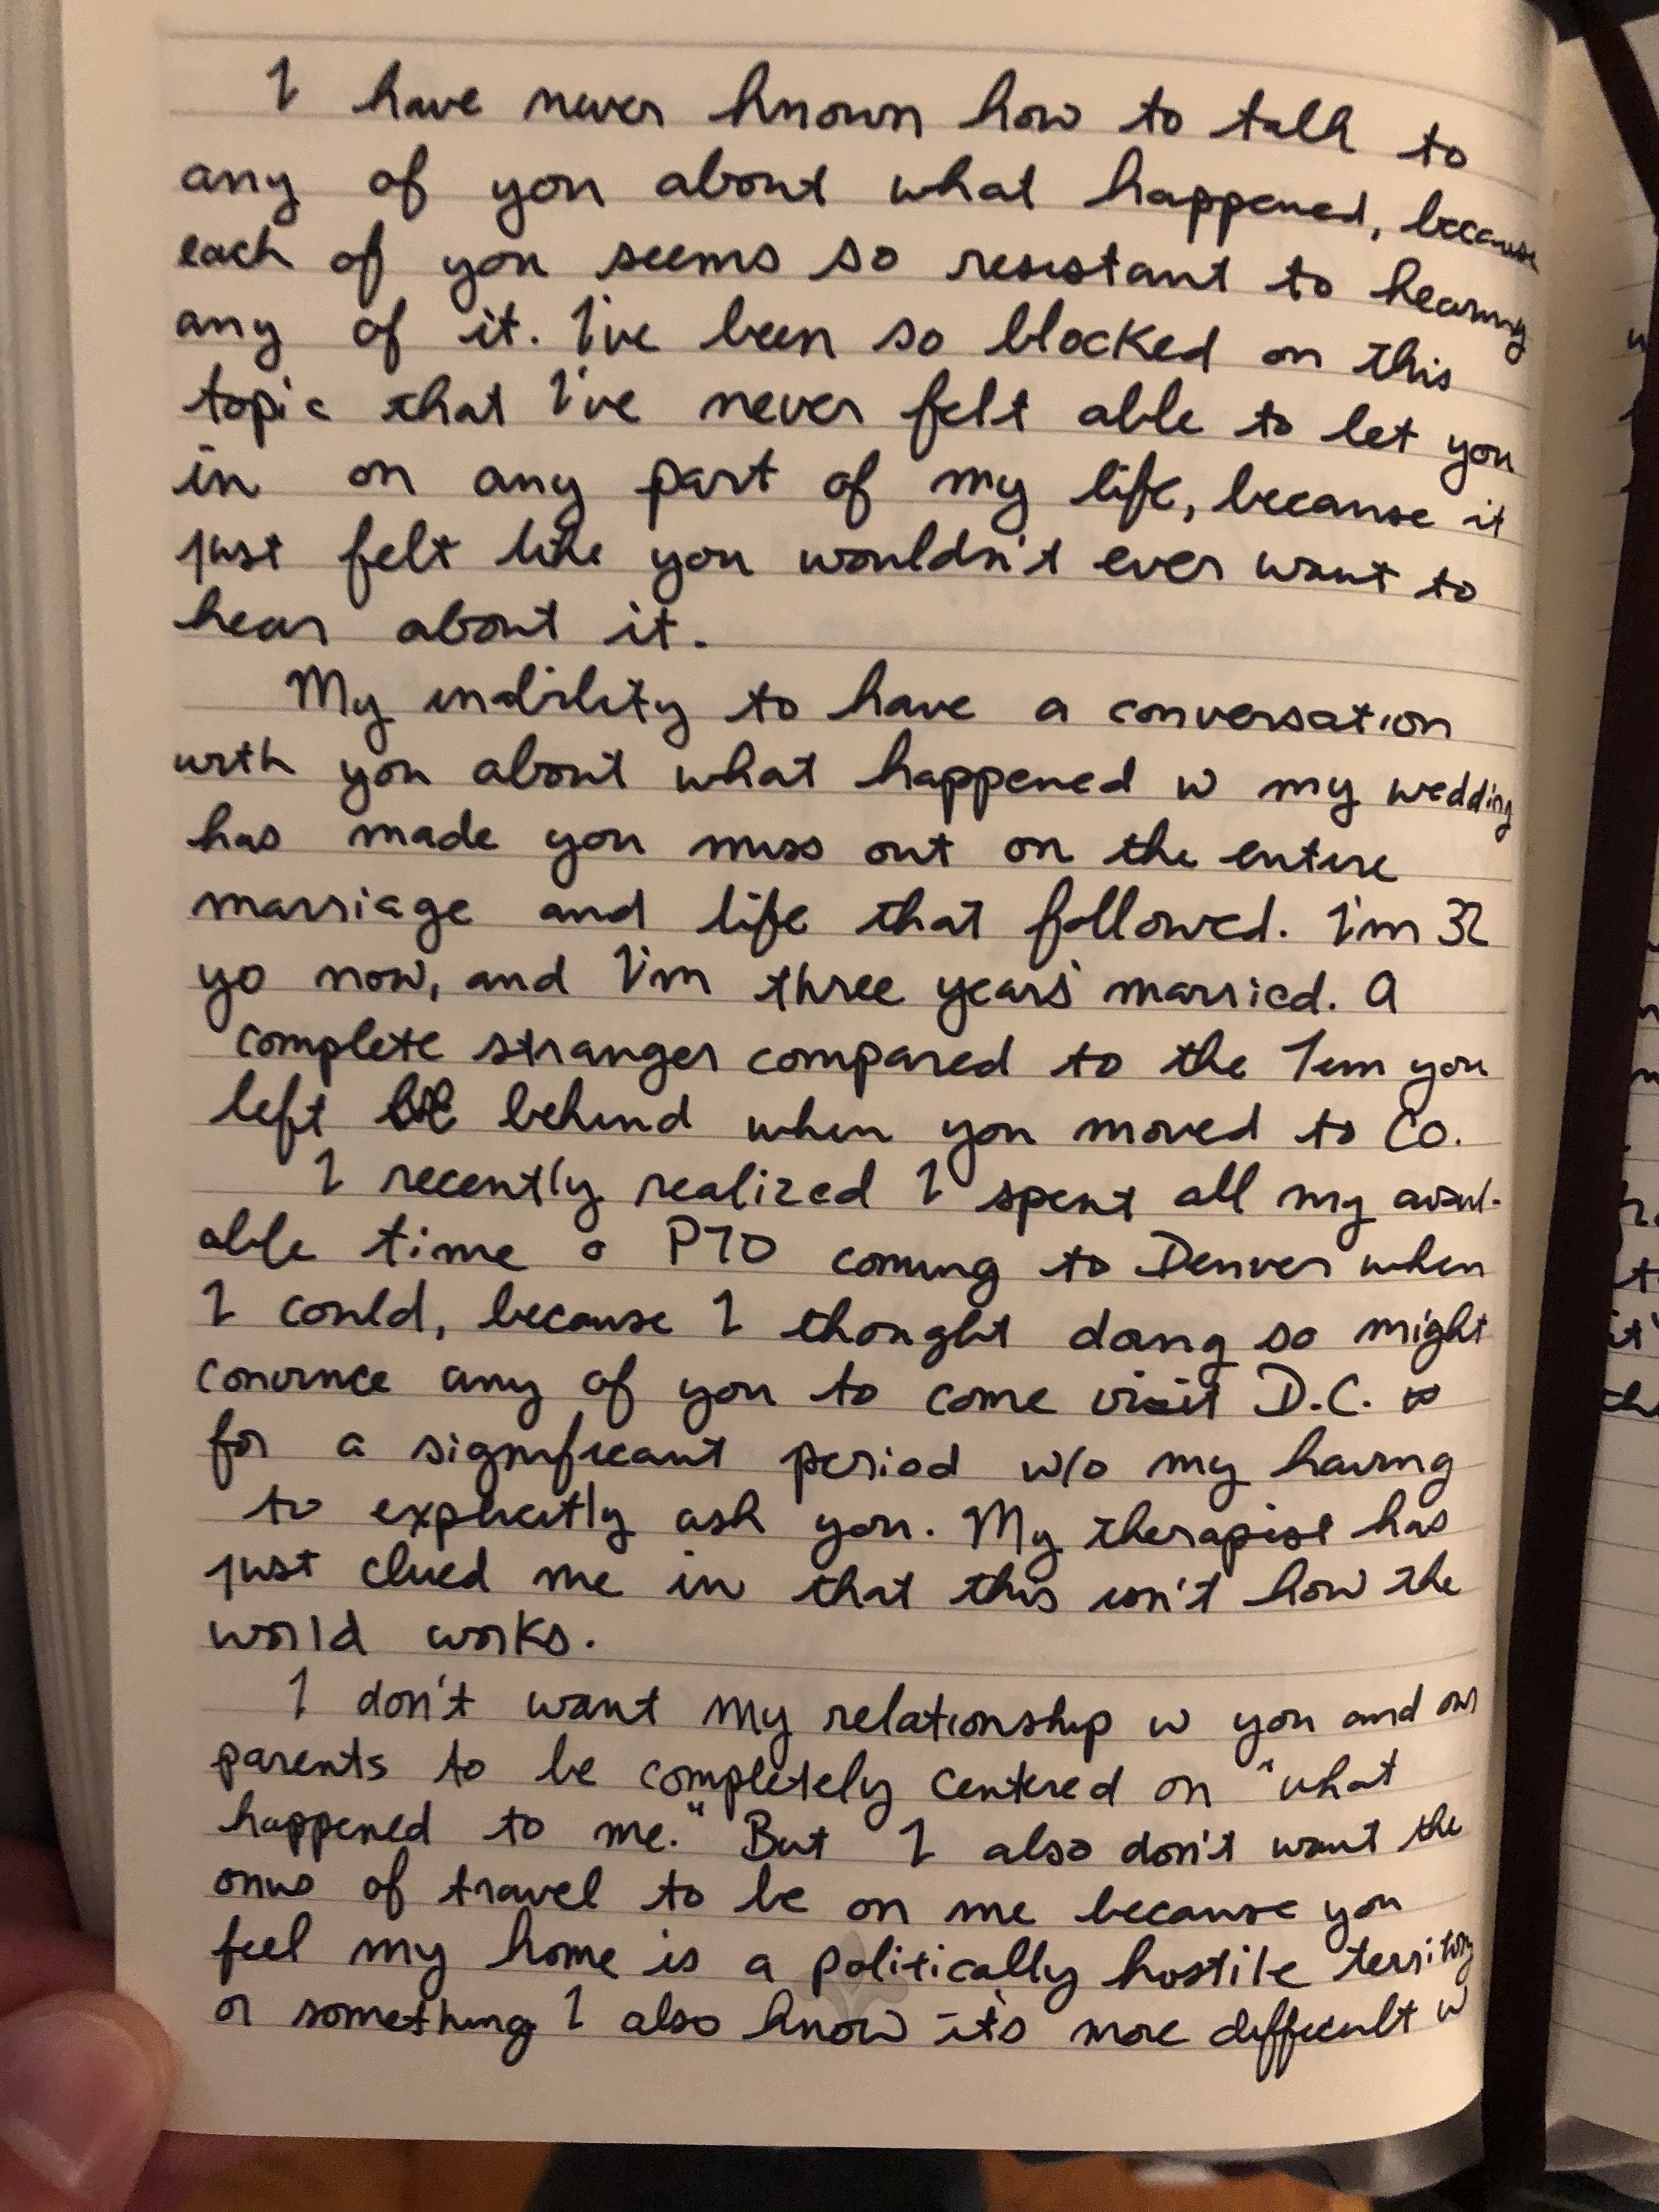 I have never known how to talk to
any of you about what happened, because
each of you seems so resistant to hearing
any of it. I've been so blocked on this
topic that I've never felt able to let you
in on any part of my life, because it
just felt like you wouldn't ever want to
hear about it.
My inability to have a conversation
with you about what happened w my wedding
has made you miss out on the entire
marriage and life that followed. I'm 32
yo now, and I'm three years' married. A
complete stranger compared to the you
left behind when you moved to Co.
I recently realized I spent all my avail-
able time PTO coming to Denver when
I could, because I thought doing so might
convince any of you to come visit D.C.
for a significant period w/o my having
to explicitly ask you. My therapist has
just clued me in that this isn't how the
world works.
I don't want my relationship w you and our
parents to be completely centered on "what
happened to me." But I also don't want the
onus of travel to be on me because you
feel my home is a politically hostile territory
or something I also know it's more difficult w